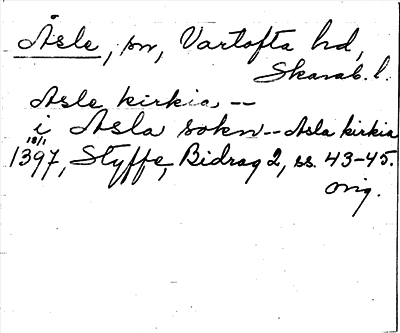 Åsle, sn, Vartofta hd,
Skarab. l.
Asle kirkia --
i Asla sokn -- Asla kirkia
10/1
1397, Styffe, Bidrag 2, ss. 43-45.
orig.